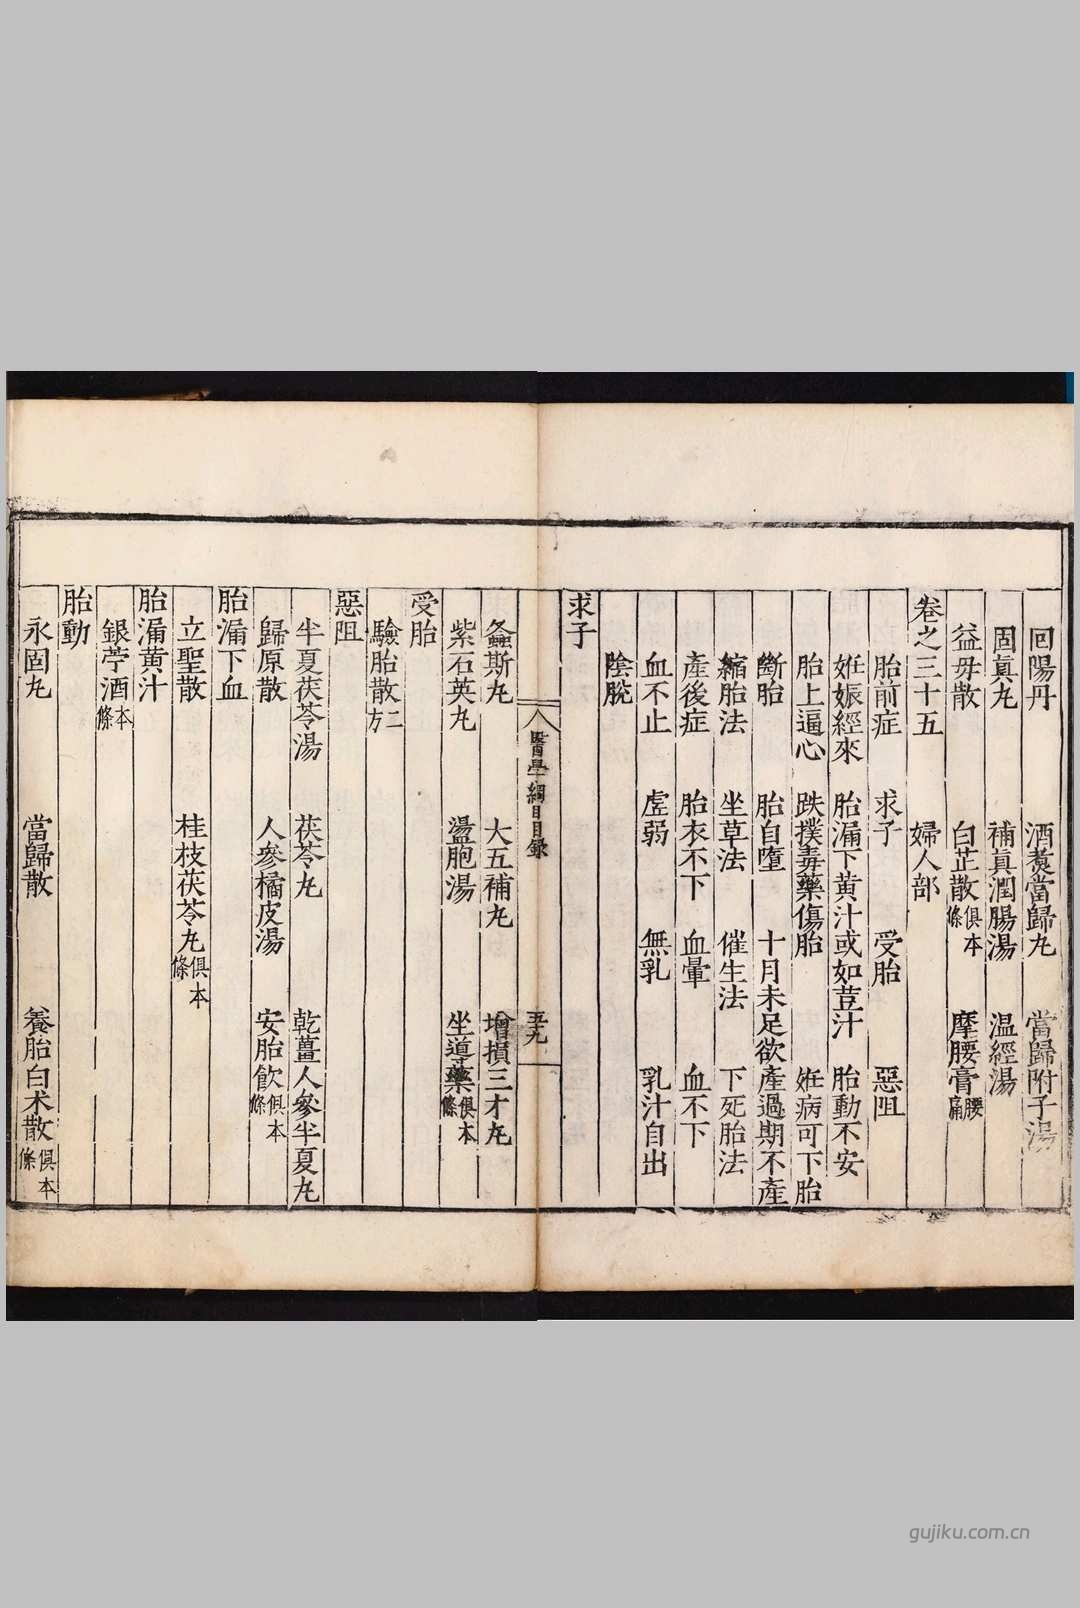 回陽丹 酒煑當歸丸 當歸附子湯
固眞丸 補眞潤腸湯 温經湯
益母散 白芷散俱本條 摩腰膏腰痛
卷之三十五 婦人部
胎前症 求子 受胎 惡阻
姙娠經來 胎漏下黄汁或如荳汁 胎動不安
胎上逼心 跌撲毒藥傷胎 姙病可下胎
斷胎 胎自墮 十月未足欲產過期不產
縮胎法 坐草法 催生法 下死胎法
產後症 胎衣不下 血暈 血不下
血不止 虛弱 無乳 乳汁自出
陰脫
求子
醫學綱目目錄 五十九
螽斯丸 大五補丸 增損三才丸
紫石英丸 盪胞湯 坐導藥俱本條
受胎
驗胎散二方
惡阻
半夏茯苓湯 茯苓丸 乾薑人參半夏丸
歸原散 人參橘皮湯 安胎飲俱本條
胎漏下血
立聖散 桂枝茯苓丸俱本條
胎漏黄汁
銀苧酒本條
胎動
永固丸 當歸散 養胎白术散俱本條
gujiku.com.cn